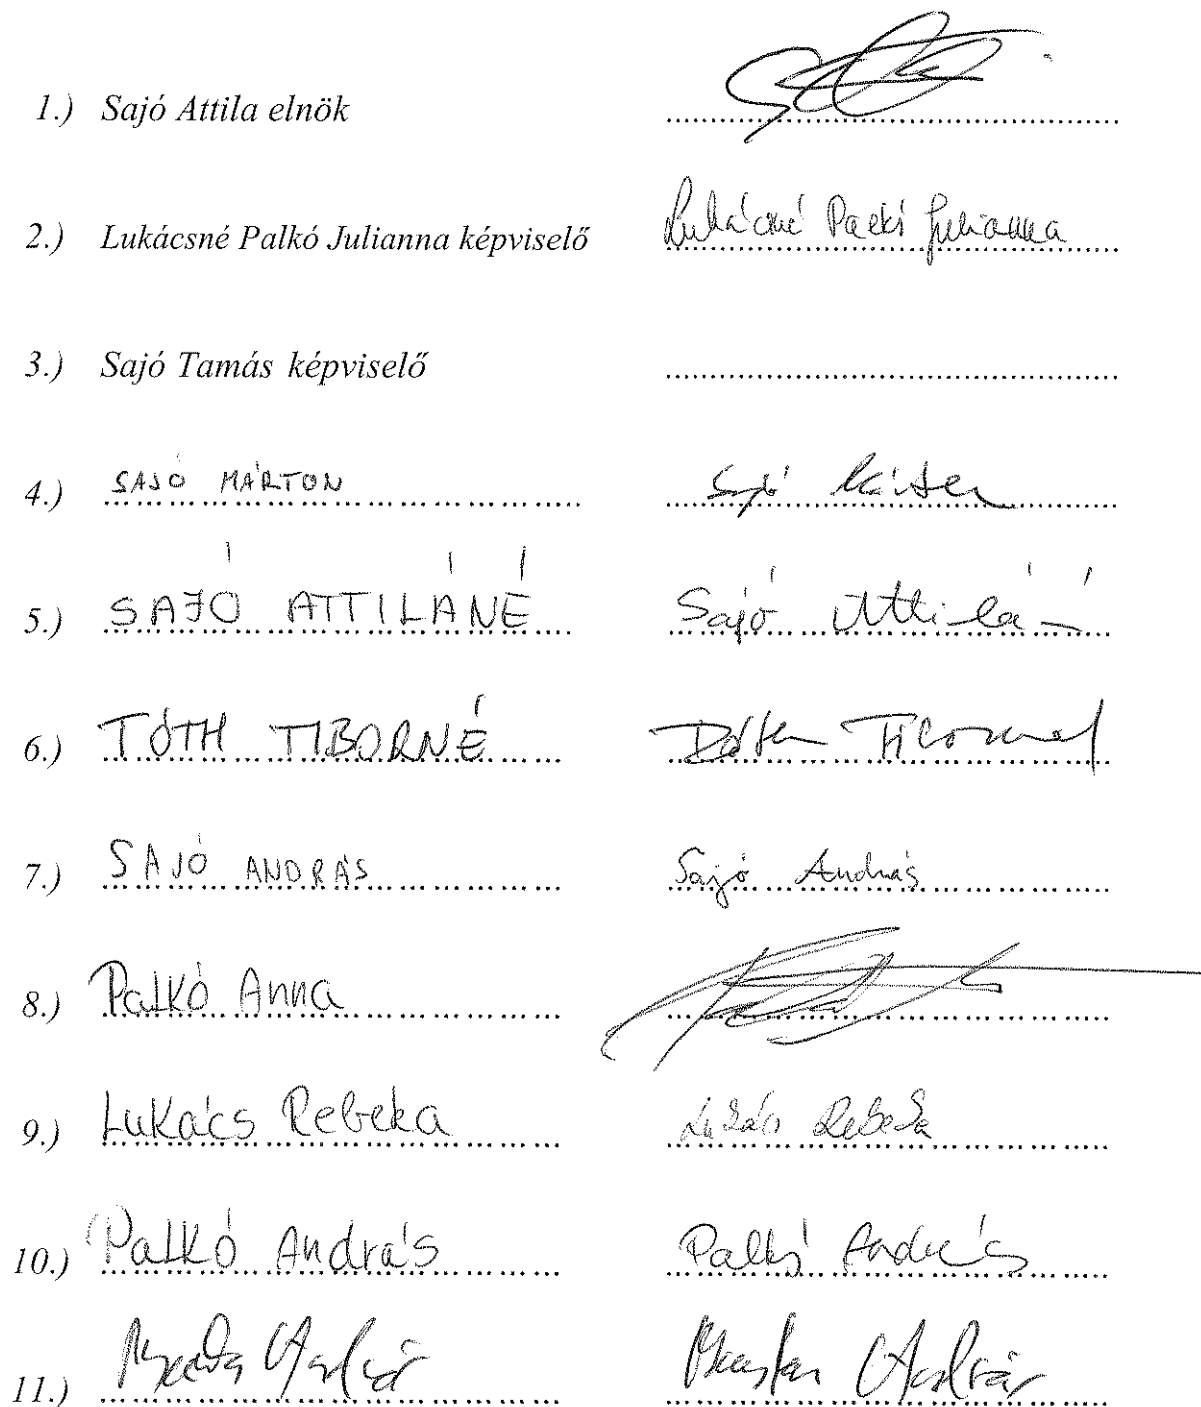 1.) Sajó Attila elnök
2.) Lukácsné Palkó Julianna képviselő Lukácsné Palkó Julianna
3.) Sajó Tamás képviselő
4.) SAJÓ MÁRTON Sajó Márton
5.) SAJÓ ATTILÁNÉ Sajó Attiláné
6.) TÓTH TIBORNÉ Tóth Tiborné
7.) SAJÓ ANDRÁS Sajó András
8.) Palkó Anna
9.) Lukács Rebeka Lukács Rebeka
10.) Palkó András Palkó András
11.)